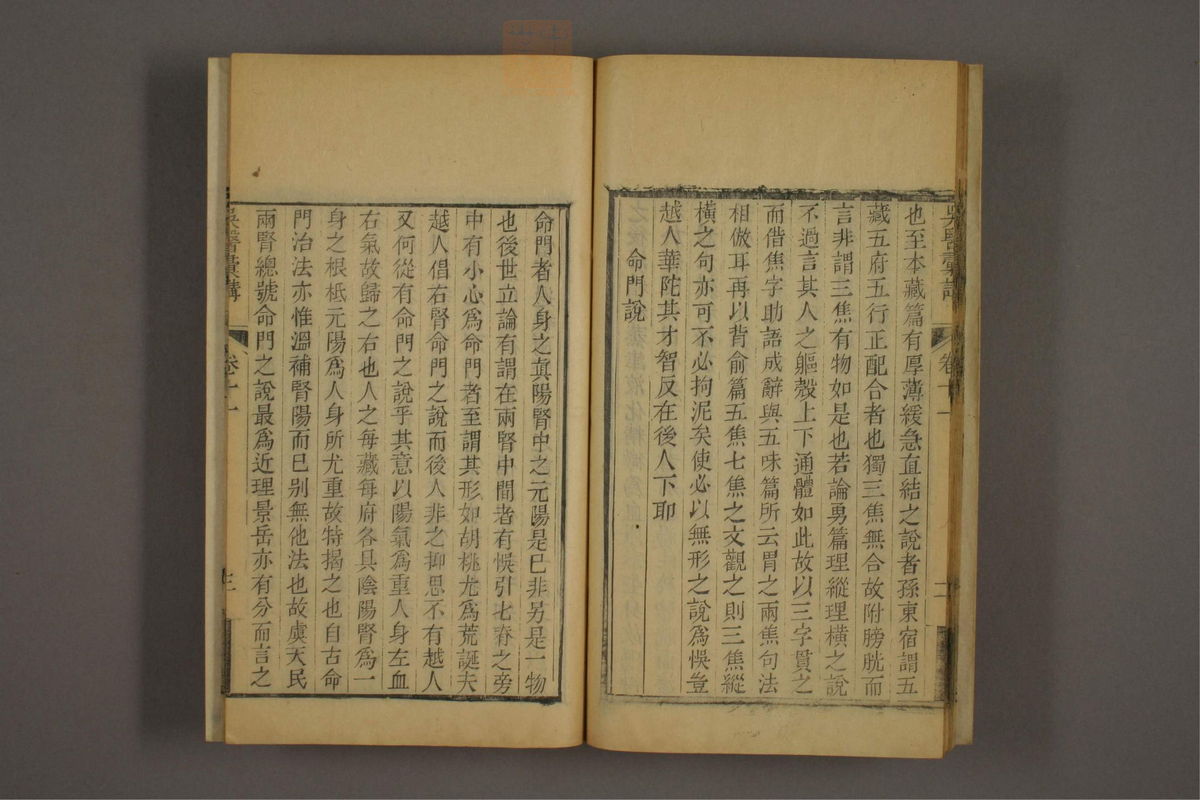 也至本藏篇有厚薄緩急直結之說者孫東宿謂五
藏五府五行正配合者也獨三焦無合故附膀胱而
言非謂三焦有物如是也若論勇篇理縱理橫之說
不過言其人之軀殼上下通體如此故以三字貫之
而借焦字助語成辭與五味篇所云胃之兩焦句法
相倣耳再以背俞篇五焦七焦之文觀之則三焦縱
橫之句亦可不必拘泥矣使必以無形之說爲悞豈
越人華陀其才智反在後人下耶
命門說
命門者人身之眞陽腎中之元陽是已非另是一物
也後世立論有謂在兩腎中間者有悞引七脊之旁
中有小心爲命門者至謂其形如胡桃尤爲荒誕夫
越人倡右腎命門之說而後人非之抑思不有越人
又何從有命門之說乎其意以陽氣爲重人身左血
右氣故歸之右也人之每藏每府各具陰陽腎爲一
身之根柢元陽爲人身所尤重故特揭之也自古命
門治法亦惟溫補腎陽而已别無他法也故虞天民
兩腎總號命門之說最爲近理景岳亦有分而言之
吳醫彙講
卷十一